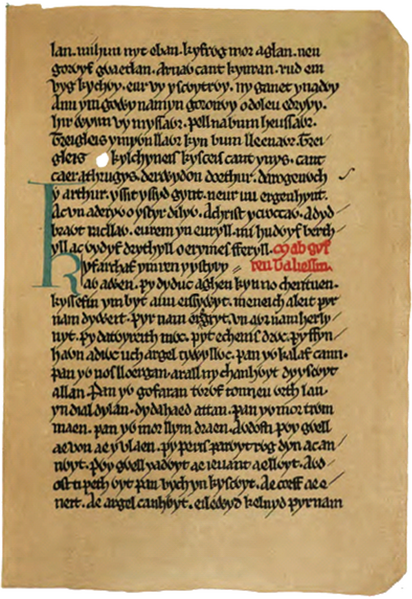 lan. mi hun nyt eban. kyfrog mor aglan. neu
goruyf gwaetlan. arnaw cant kynran. rud em
vyg kychwy. eur vy yscwytrwy. ny ganet yn adwy
A uu ym gowy namyn goronwy o doleu edrywy.
hir wynn vy myssawr. pell na bum heussawr.
Treigleis y mywn llawr kyn bum lleenawr. Trei
gleis kylchyneis kysceis cant ynys. cant
caer athrugys. derwydon doethur. darogenwch
y arthur. yssit yssyd gynt. neur mi ergenhynt.
Ac vn aderyw o ystyr dilyw. A christ y croccaw. A dyd
brawt rac llaw. eurem yn euryll. mi hudwyf berth
yll ac vydyf drythyll o erymes fferyll. Mab gyf
Kyfarchaf ym ren y ystyryaw reu taliessin.
awen. py dyduc aghen kyn no cherituen.
kyssefin ym byt a uu eissywyt. meneich aleit pyr
nam dyweit. pyr nam eregyt. vn awr nam herly
nyt. py datwyreith mwc. pyt echenis drwc. py ffyn
hawn a diwc uch argel tywyllwc. pan yw kalaf cann.
pan yw nos lloergan. arall ny chanhwyt dy yscwyt
allan. Pan yw gofaran twrwf tonneu wrth lan.
yn dial dylan. dydahaed attan. pan yw mor trwm
maen. pan yw mor llym draen. Awdosti pwy gwell
ae von ae y vlaen. py peris parwyt rwg dyn ac an
nwyt. Pwy gwell y adwyt ae ieuanc ae llwyt. Awd
osti peth wyt pan vych yn kyscwyt. Ae corff ae e
neit. Ae argel canhwyt. eilewyd keluyd pyr nam